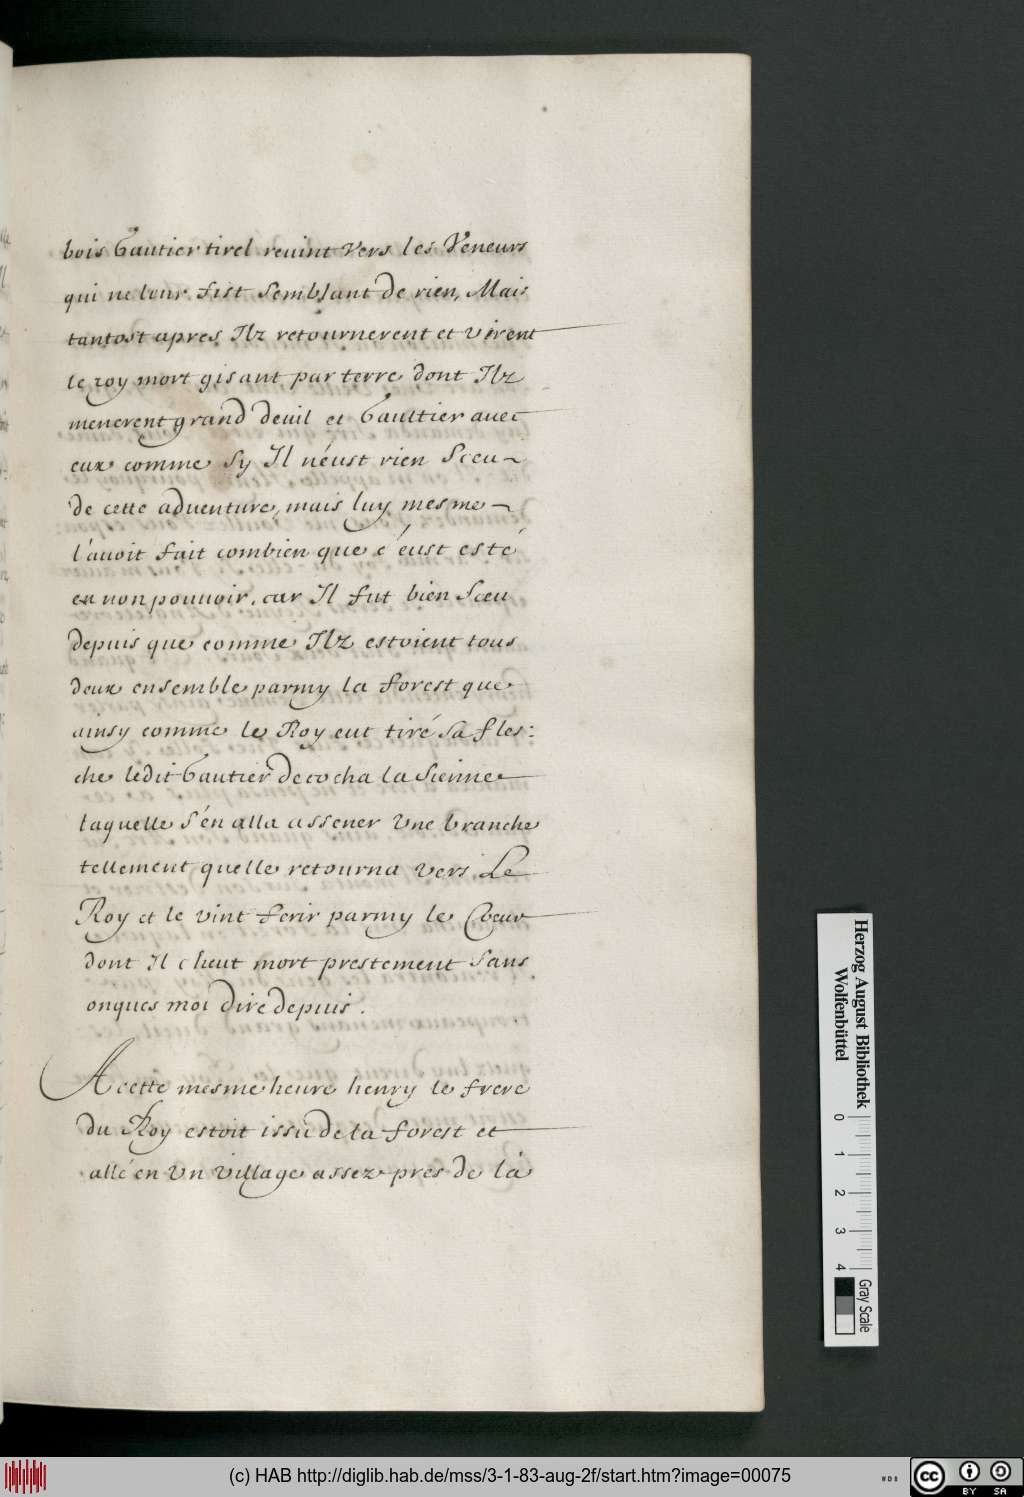 bois Gautier tirel reuint vers les Veneurs
qui ne leur fist semblant de rien, Mais
tantost apres Ilz retournerent et virent
le roy mort gisant par terre dont Ilz
menerent grand deuil et Gaultier auec
eux comme sy Il n'eust rien sceu
de cette aduenture, mais luy mesme
l'auoit fait combien que c'eust esté
en non pouuoir, car Il fut bien sceu
depuis que comme Ilz estoient tous
deux ensemble parmy la forest que
ainsy comme le Roy eut tiré sa fles:
che ledit Gautier decocha la sienne
laquelle s'en alla assener vne branche
tellement quelle retourna vers Le
Roy et le vint ferir parmy le Coeur
dont Il cheut mort prestement sans
onques moi dire depuis.
A cette mesme heure henry le frere
du Roy estoit issu de la forest et
allé en vn village assez pres de là
Herzog August Bibliothek
Wolfenbüttel
0 1 2 3 4
Gray Scale
(c) HAB http://diglib.hab.de/mss/3-1-83-aug-2f/start.htm?image=00075
cc BY SA